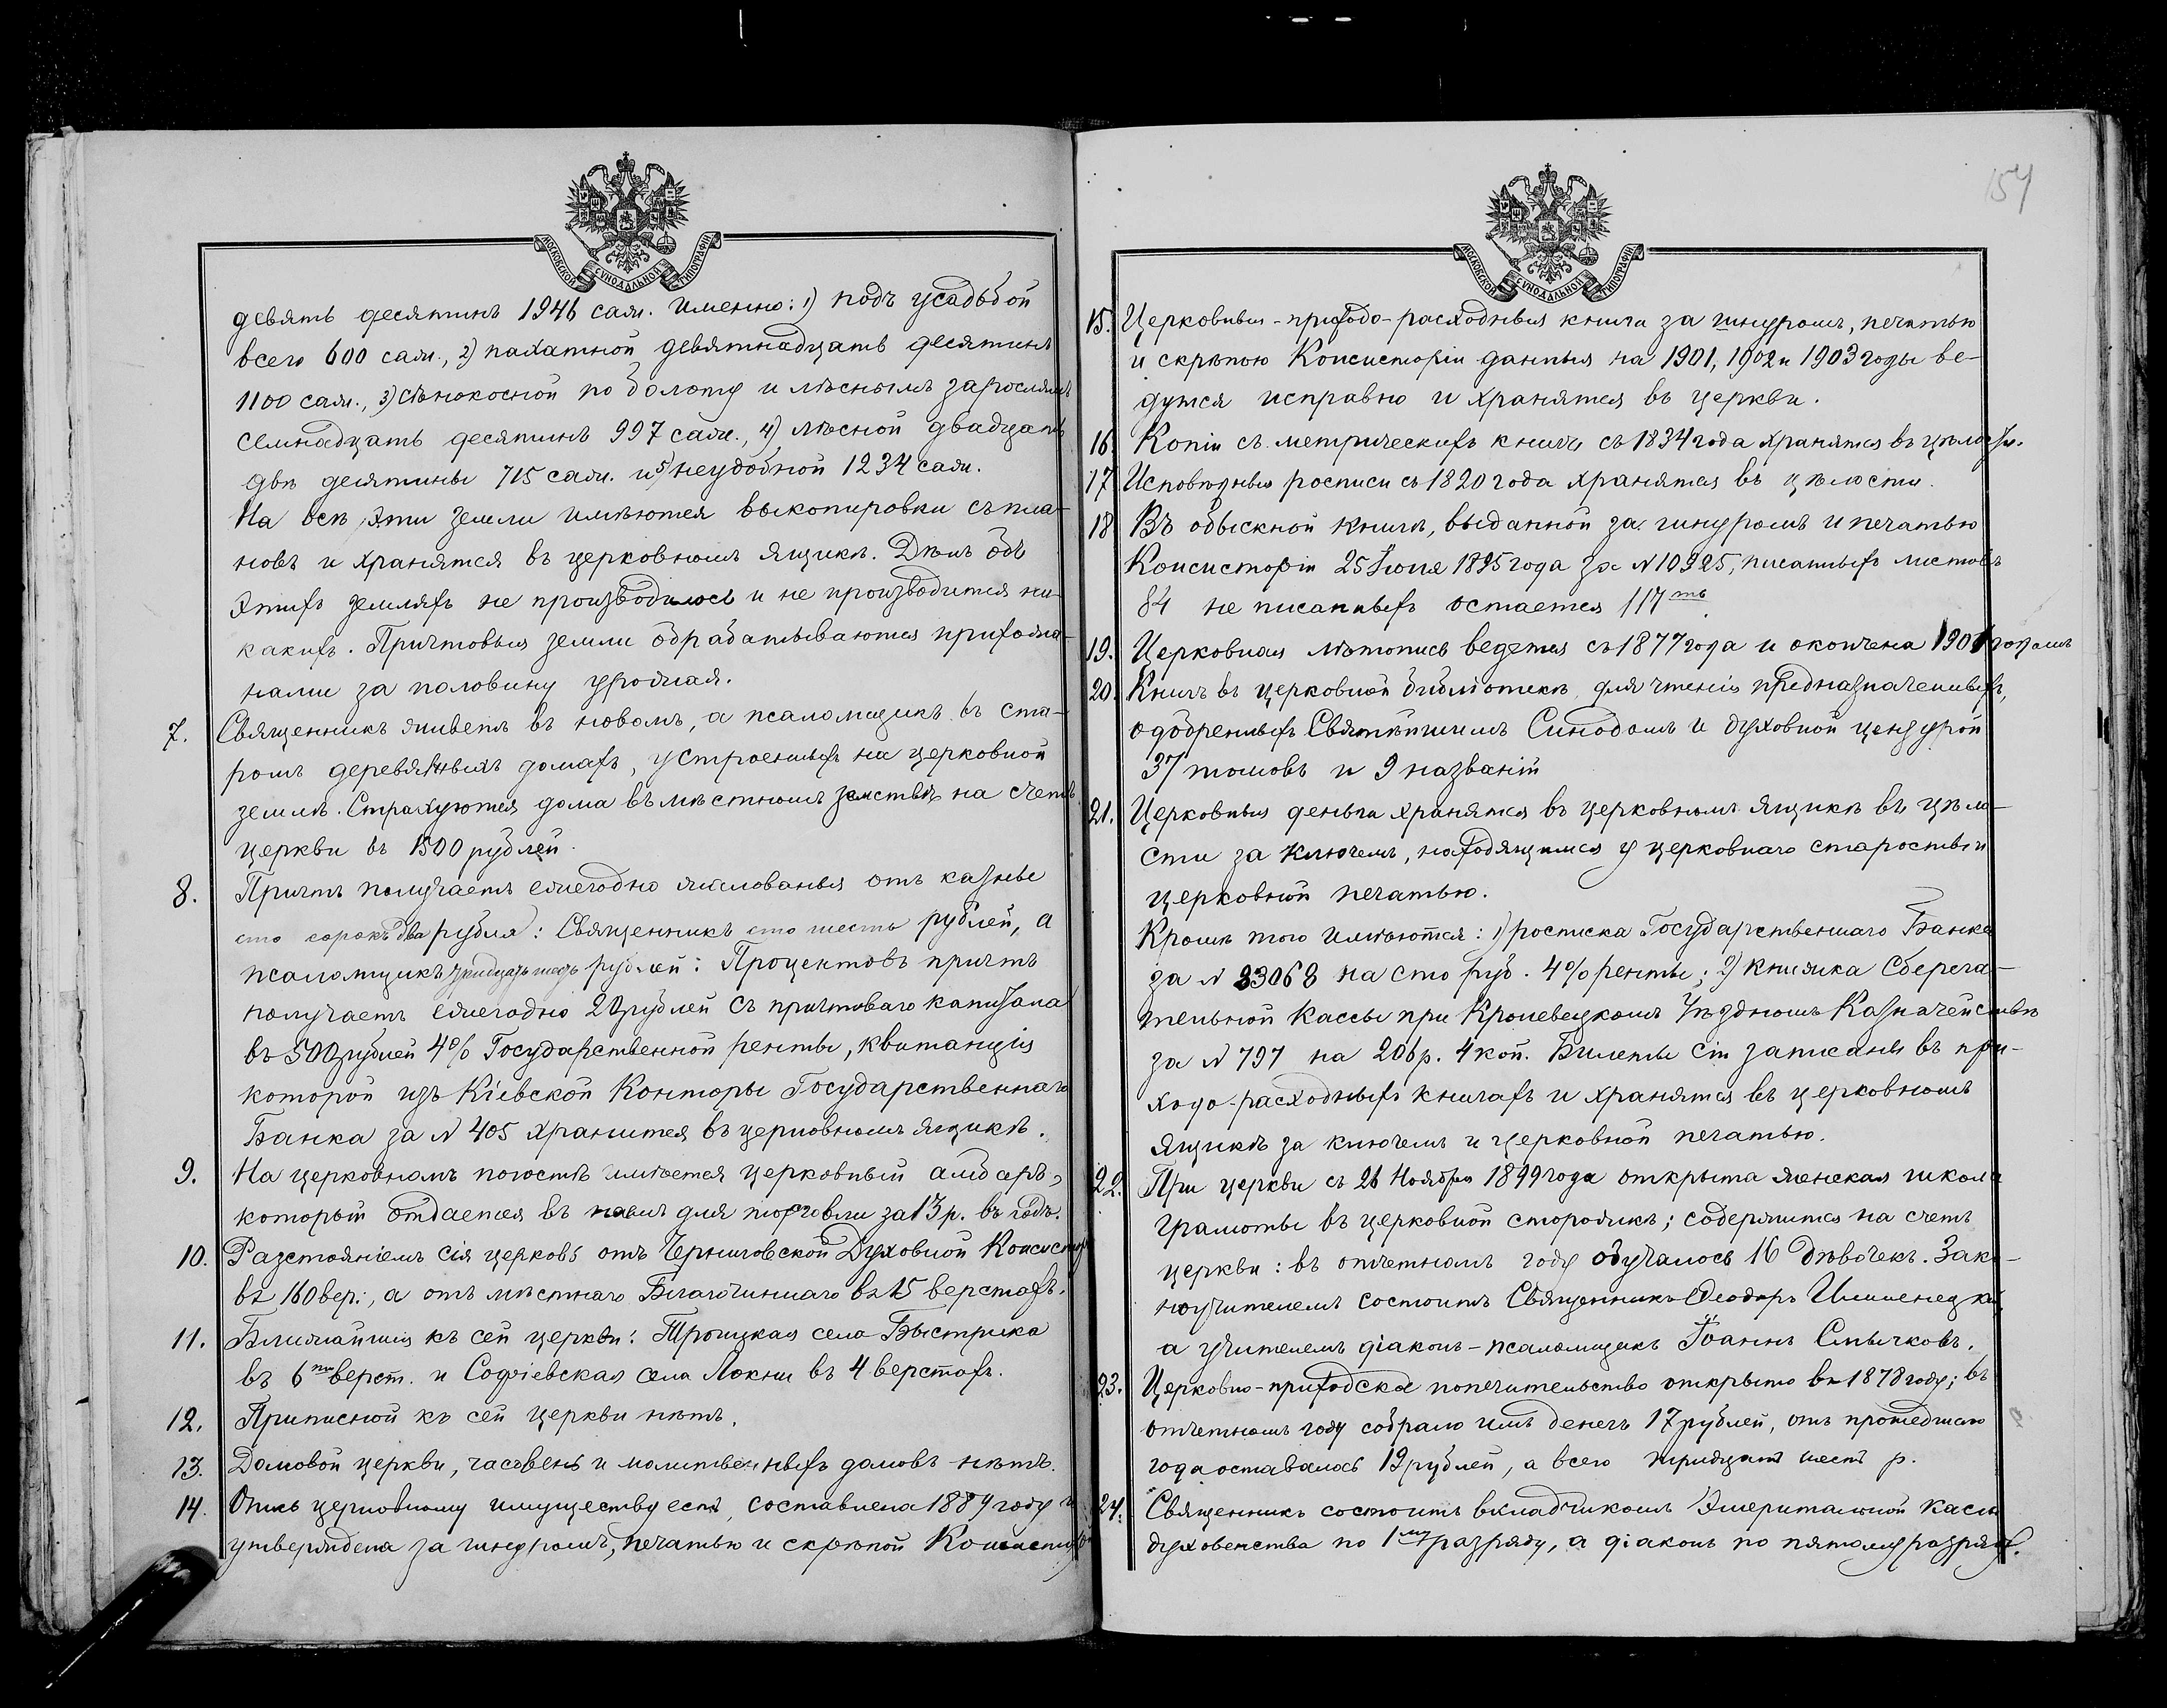 МОСКОВСКОЙ СѴНОДАЛЬНОЙ ТИПОГРАФІИ
девять десятинъ 1946 саж. Именно: 1) подъ усадьбой
всего 600 саж., 2) пахатной девятнадцать десятинъ
1100 саж., 3) сѣнокосной по болоту и лѣснымъ зарослямъ
семнадцать десятинъ 997 саж., 4) лѣсной двадцать
двѣ десятины 715 саж. и 5) неудобной 1234 саж.
На всѣ эти земли имѣются выкопировки съ пла-
новъ и хранятся въ церковномъ ящикѣ. Дѣлъ объ
этихъ земляхъ не производилось и не производится ни-
какихъ. Причтовыя земли обрабатываются прихожа-
нами за половину урожая.
7. Священникъ живетъ въ новомъ, а псаломщикъ въ ста-
ромъ деревянныхъ домахъ, устроенныхъ на церковной
землѣ. Страхуются дома въ мѣстномъ земствѣ на счетъ
церкви въ 1500 рублей.
8. Причтъ получаетъ ежегодно жалованья отъ казны
сто сорокъ два рубля: Священникъ сто шесть рублей, а
псаломщикъ тридцать шесть рублей: Процентовъ причтъ
получаетъ ежегодно 20 рублей съ причтоваго капитала
въ 500 рублей 4% Государственной ренты, квитанція
которой изъ Кіевской Конторы Государственнаго
Банка за N 405 хранится въ церковномъ ящикѣ.
9. На церковномъ погостѣ имѣется церковный амбаръ,
который отдается въ наемъ для торговли за 13 р. въ годъ.
10. Разстояніемъ сія церковь отъ Черниговской Духовной Консистор
въ 160 вер., а отъ мѣстнаго Благочиннаго въ 15 верстахъ.
11. Ближайшія къ сей церкви: Троицкая села Быстрика
въ 6ти верст. и Софіевская села Локни въ 4 верстахъ.
12. Приписной къ сей церкви нѣтъ.
13. Домовой церкви, часовень и молитвенныхъ домовъ нѣтъ.
14. Опись церковному имуществу есть, составлена 1889 году и
утверждена за шнуромъ, печатью и скрѣпой Консисторіи
154
МОСКОВСКОЙ СѴНОДАЛЬНОЙ ТИПОГРАФІИ
15. Церковныя-приходо-расходныя книги за шнуромъ, печатью
и скрѣпою Консисторіи данныя на 1901, 1902 и 1903 годы ве-
дутся исправно и хранятся въ церкви.
16. Копіи съ метрическихъ книгъ съ 1834 года хранятся въ цѣлости.
17 Исповѣдныя росписи съ 1820 года хранятся въ цѣлости.
18 Въ обыскной книгѣ, выданной за шнуромъ и печатью
Консисторіи 25 Іюня 1895 года за N 10925, писанныхъ листовъ
84 не писанныхъ остается 117ть
19. Церковная лѣтопись ведется съ 1877 года и окончена 1901 годомъ
20. Книгъ въ церковной библіотекѣ для чтенія предназначенныхъ,
одобренныхъ Святѣйшимъ Синодомъ и духовной цензурой
37 томовъ и 9 названій
21. Церковныя деньги хранятся въ церковномъ ящикѣ въ цѣло-
сти за ключемъ, находящимся у церковнаго старосты и
церковной печатью.
Кромѣ того имѣются: 1) росписка Государственнаго Банка
за N 33068 на сто руб. 4% ренты; 2) книжка Сберега-
тельной Кассы при Кролевецкомъ Уѣздномъ Казначействѣ
за N 797 на 206 р. 4 коп. Билеты сіи записаны въ при-
ходо-расходныхъ книгахъ и хранятся въ церковномъ
ящикѣ за ключемъ и церковной печатью.
22. При церкви съ 26 Ноября 1899 года открыта женская школа
грамоты въ церковной сторожкѣ; содержится на счетъ
церкви: въ отчетномъ году обучалось 16 дѣвочекъ. Зако-
ноучителемъ состоитъ Священникъ Ѳеодоръ
а учителемъ діаконъ-псаломщикъ Іоаннъ Смычковъ.
23. Церковно-приходское попечительство открыто въ 1878 году; въ
отчетномъ году собрало имъ денегъ 17 рублей, отъ прошедшаго
года оставалось 19 рублей, а всего тридцать шесть р.
24. Священникъ состоитъ вкладчикомъ Эмеритальной кассы
духовенства по 1му разряду, а діаконъ по пятому разряду.